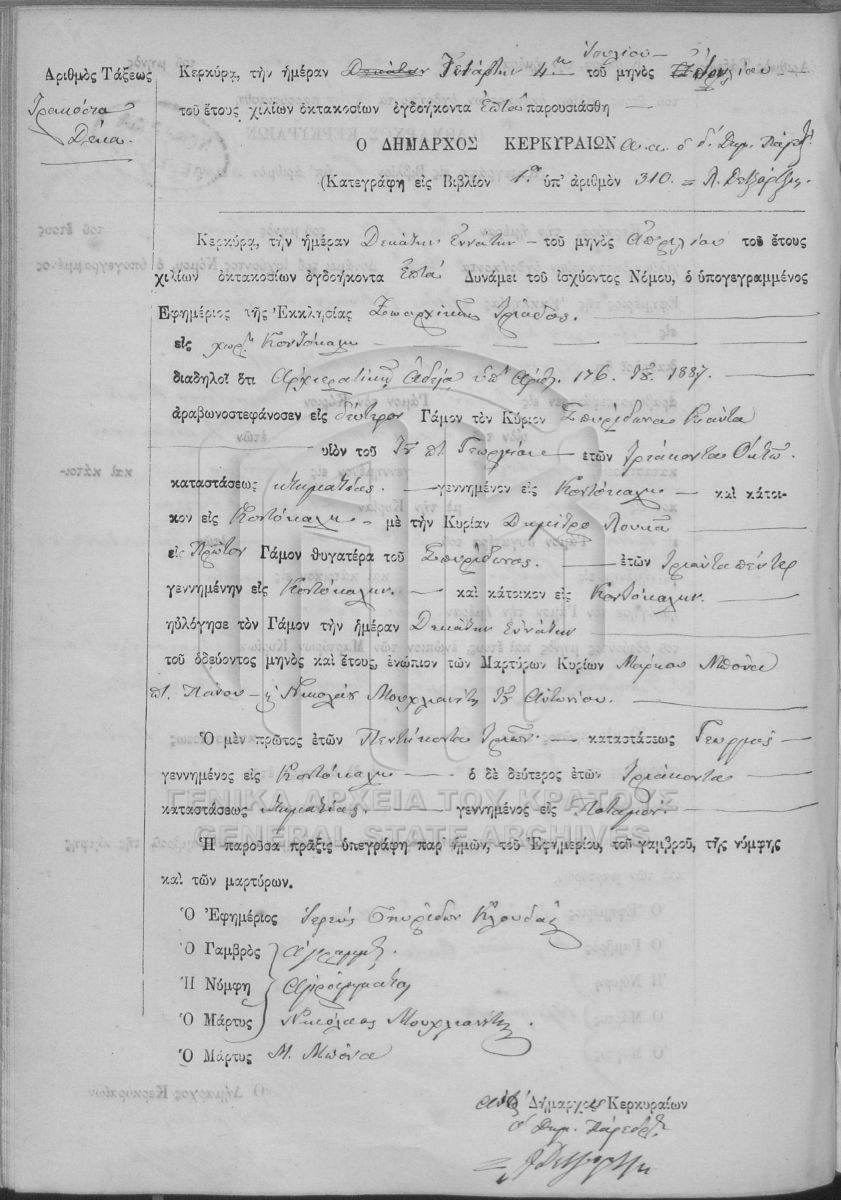 Ἀριθμὸς Τάξεως
Τριακόσια
Δέκα.
Ἰουλίου
Κερκύρᾳ, τὴν ἡμέραν Τετάρτην 4ην τοῦ μηνὸς
τοῦ ἔτους χιλίων ὀκτακοσίων ὀγδοήκοντα Ἑπτὰ παρουσιάσθη
Ο ΔΗΜΑΡΧΟΣ ΚΕΡΚΥΡΑΙΩΝ
(Κατεγράφη εἰς Βιβλίον 1ον ὑπ' ἀριθμὸν 310.
Κερκύρᾳ, τὴν ἡμέραν Δεκάτην Ἐννάτην τοῦ μηνὸς Ἀπριλίου τοῦ ἔτους
χιλίων ὀκτακοσίων ὀγδοήκοντα Ἑπτὰ Δυνάμει τοῦ ἰσχύοντος Νόμου, ὁ ὑπογεγραμμένος
Ἐφημέριος τῆς Ἐκκλησίας Ζωαρχικῆς Τριάδος.
εἰς χωρ. Κοντόκαλη
διαδηλοῖ ὅτι Ἀρχιερατικῇ Ἀδείᾳ ὑπ' Ἀριθ. 176 1887.
ἀραβωνοστεφάνοσεν εἰς δεύτερον Γάμον τὸν Κύριον Σπυρίδωνα
υἱὸν τοῦ Γεωργίου ἐτῶν Τριάκοντα Ὀκτὼ
καταστάσεως κτηματίας. γεννημένον εἰς Κοντόκαλη καὶ κάτοι-
κον εἰς Κοντόκαλη μὲ τὴν Κυρίαν Δημήτρο Λουκᾶ
εἰς Πρῶτον Γάμον θυγατέρα τοῦ Σπυρίδωνος. ἐτῶν Τριάντα πέντε
γεννημένην εἰς Κοντόκαλην. καὶ κάτοικον εἰς Κοντόκαλην.
ηὐλόγησε τὸν Γάμον τὴν ἡμέραν Δεκάτην Ἐννάτην
τοῦ ὁδεύοντος μηνὸς καὶ ἔτους, ἐνώπιον τῶν Μαρτύρων Κυρίων Μάρκου Μπόνα
Πάνου Νικολάου Μουχλιανίτη Ἀντωνίου.
Ὁ μὲν πρῶτος ἐτῶν Πεντήκοντα Τριῶν καταστάσεως Γεωργὸς
γεννημένος εἰς Κοντόκαλη ὁ δὲ δεύτερος ἐτῶν Τριάκοντα
ΓΕΝΙΚΑ ΑΡΧΕΙΑ ΤΟΥ ΚΡΑΤΟΥΣ
καταστάσεως κτηματίας. γεννημένος εἰς Ποταμόν.
GENERAL STATE ARCHIVES
Ἡ παροῦσα πρᾶξις ὑπεγράφη παρ' ἡμῶν, τοῦ Ἐφημερίου, τοῦ γαμβροῦ, τῆς νύμφης
καὶ τῶν μαρτύρων.
Ὁ Ἐφημέριος Ἱερεὺς Σπυρίδων
Ὁ Γαμβρὸς ἀγράμματ.
Ἡ Νύμφη ἀγράμματοι
Ὁ Μάρτυς Νικόλαος Μουχλιανίτης.
Ὁ Μάρτυς Μ. Μπόνα
Ὁ Δήμαρχος Κερκυραίων
ὁ Δημ. Πάρεδρος